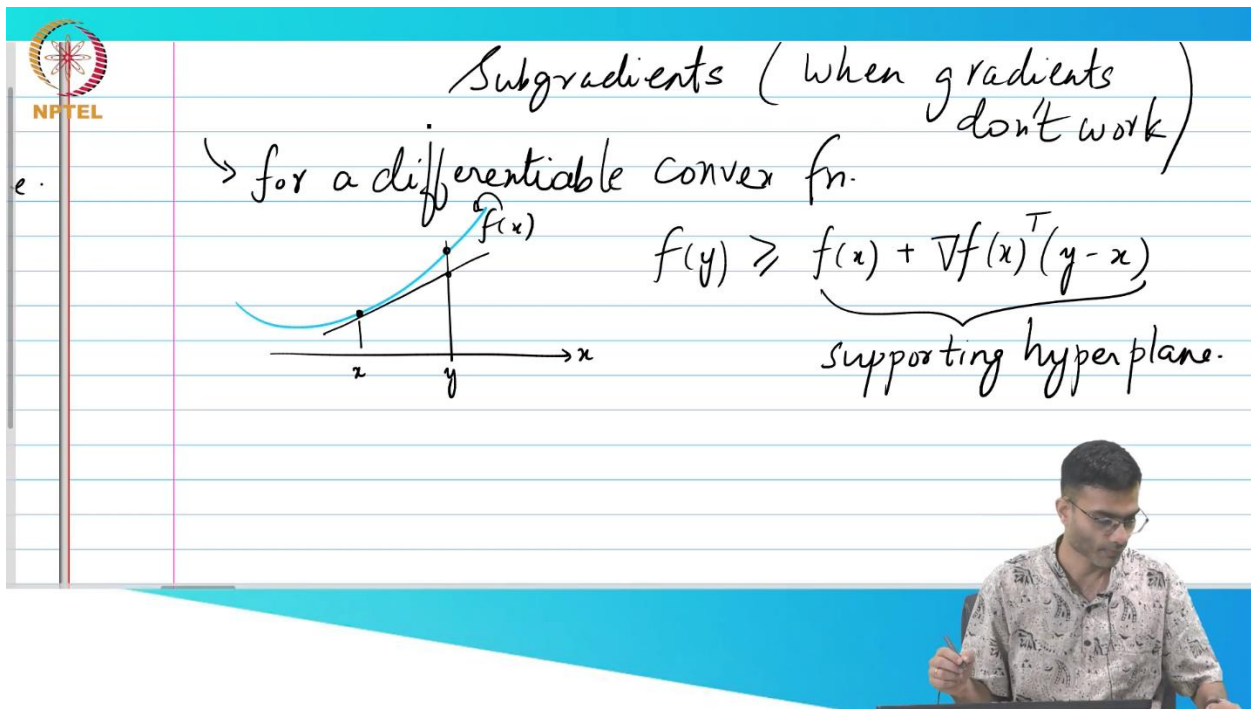 NPTEL
Subgradients (when gradients
don't work)
e.
↳ for a differentiable convex fn.
f(x)
f(y) ≥ f(x) + ∇f(x)ᵀ(y-x)
supporting hyperplane.
x y → x